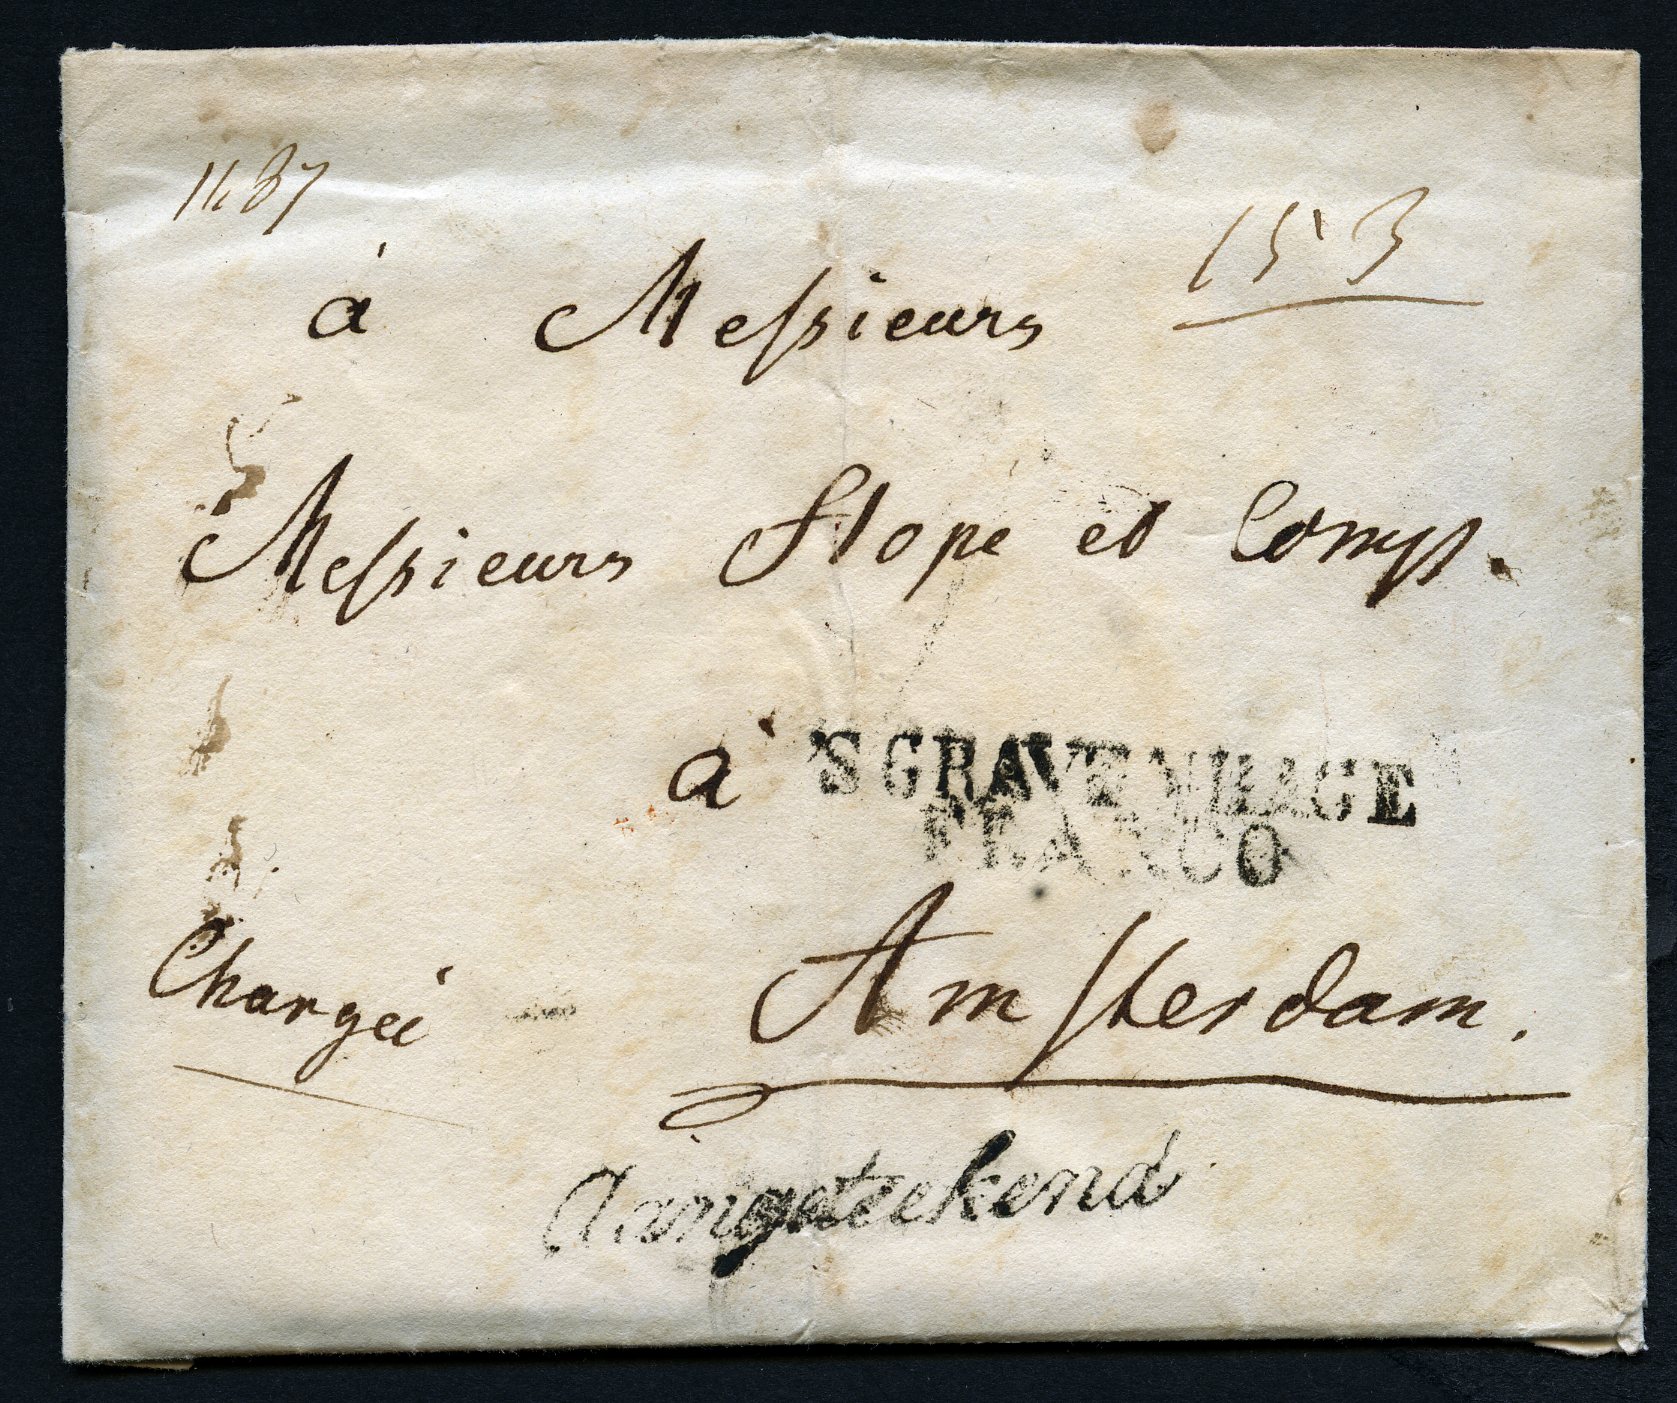 1487
153
à Messieurs
Messieurs Hope et Comp.
à
'SGRAVENHAGE
FRANCO
Chargée
Amsterdam.
Aangeteekend